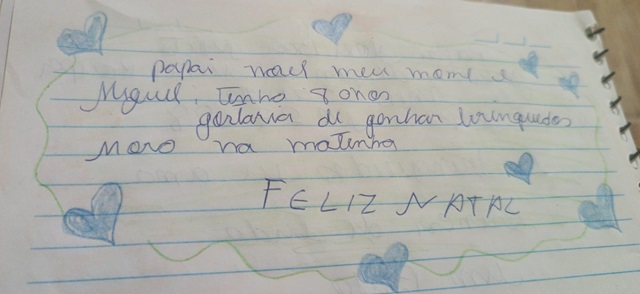 papai noel meu nome e
Miguel, tenho 8 anos
gostaria de ganhar brinquedos
Moro na matinha
FELIZ NATAL